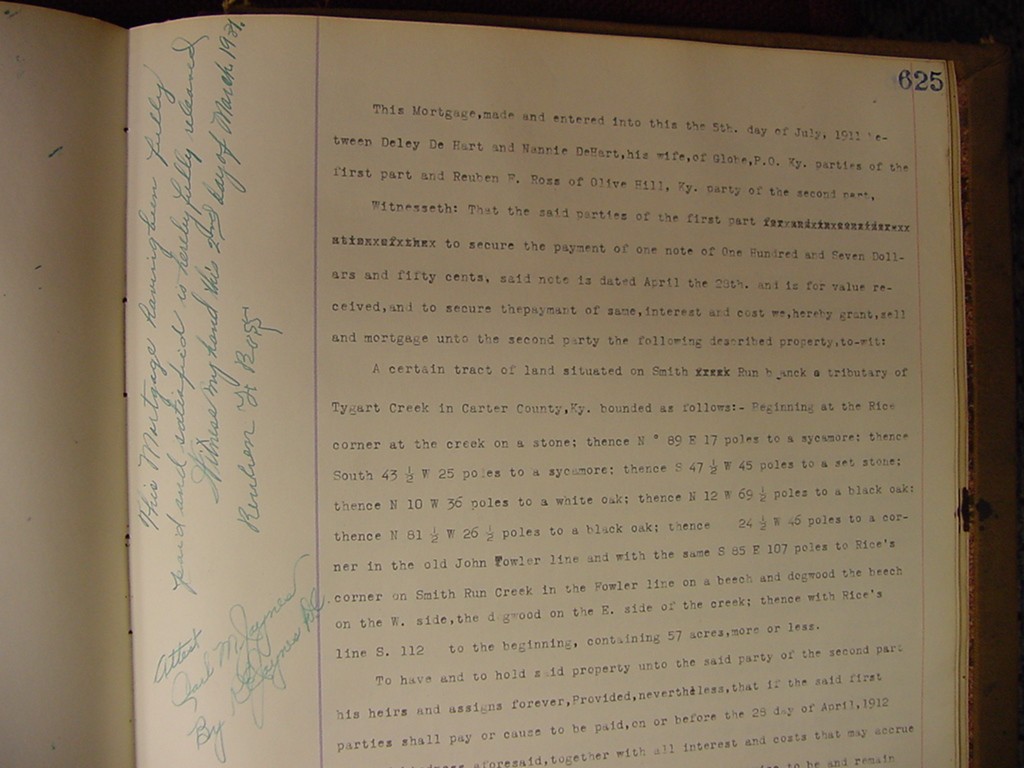 625
This Mortgage,made and entered into this the 5th. day of July, 1911 be-
tween Deley De Hart and Nannie DeHart,his wife,of Globe,P.O. Ky. parties of the
first part and Reuben F. Ross of Olive Hill, Ky. party of the second part,
Witnesseth: That the said parties of the first part
to secure the payment of one note of One Hundred and Seven Doll-
ars and fifty cents, said note is dated April the 28th. and is for value re-
ceived,and to secure thepaymant of same,interest and cost we,hereby grant,sell
and mortgage unto the second party the following described property,to-wit:
A certain tract of land situated on Smith xxxxx Run b anck a tributary of
Tygart Creek in Carter County,Ky. bounded as follows:- Beginning at the Rice
corner at the creek on a stone; thence N ° 89 E 17 poles to a sycamore; thence
South 43 ½ W 25 poles to a sycamore; thence S 47 ½ W 45 poles to a set stone;
thence N 10 W 36 poles to a white oak; thence N 12 W 69 ½ poles to a black oak;
thence N 81 ½ W 26 ½ poles to a black oak; thence 24 ½ W 46 poles to a cor-
ner in the old John Fowler line and with the same S 85 E 107 poles to Rice's
corner on Smith Run Creek in the Fowler line on a beech and dogwood the beech
on the W. side,the dogwood on the E. side of the creek; thence with Rice's
line S. 112 to the beginning, containing 57 acres,more or less.
To have and to hold said property unto the said party of the second part
his heirs and assigns forever,Provided,nevertheless,that if the said first
parties shall pay or cause to be paid,on or before the 28 day of April,1912
aforesaid,together with all interest and costs that may accrue
to be and remain
This Mortgage having been fully
paid and satisfied is hereby fully released
Witness my hand this 2nd day of March 1921.
Reuben F. Ross
Attest
M. Jones
By Jaynes D.C.